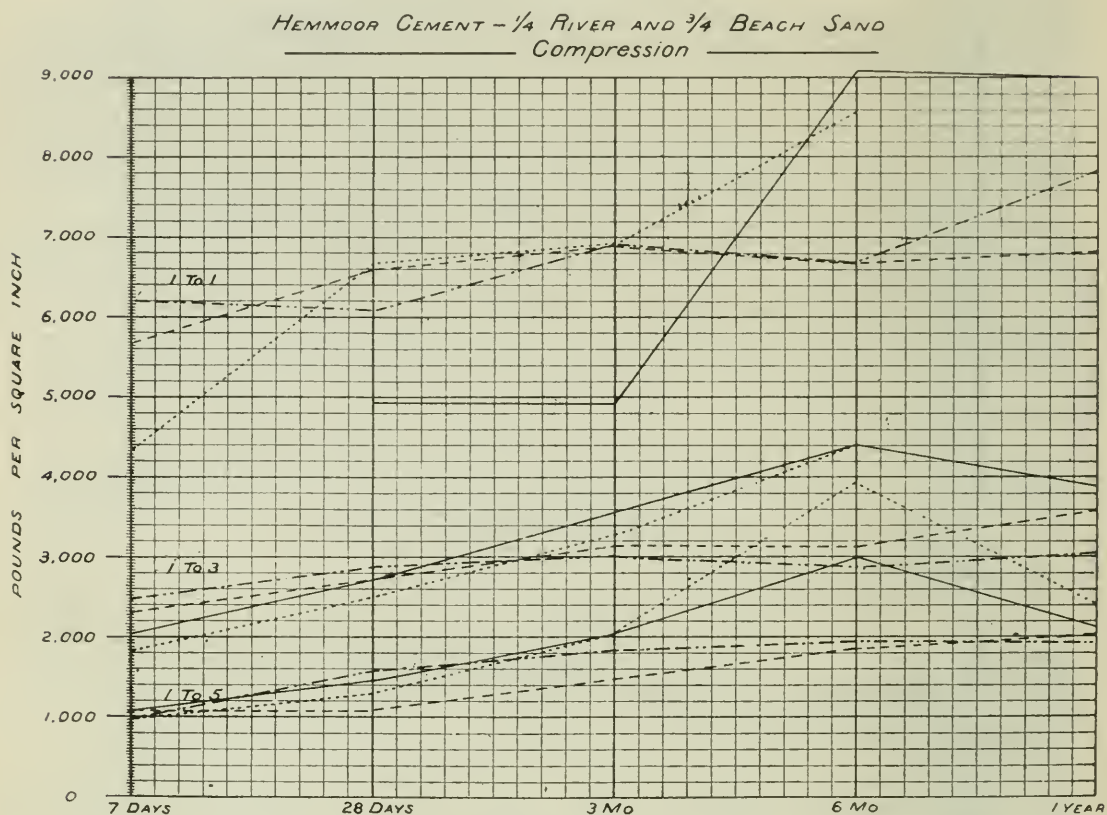 HEMMOOR CEMENT - 1/4 RIVER AND 3/4 BEACH SAND
Compression
POUNDS PER SQUARE INCH
9,000
8,000
7,000
6,000
5,000
4,000
3,000
2,000
1,000
0
1 TO 1
1 TO 3
1 TO 5
7 DAYS
28 DAYS
3 MO
6 MO
1 YEAR